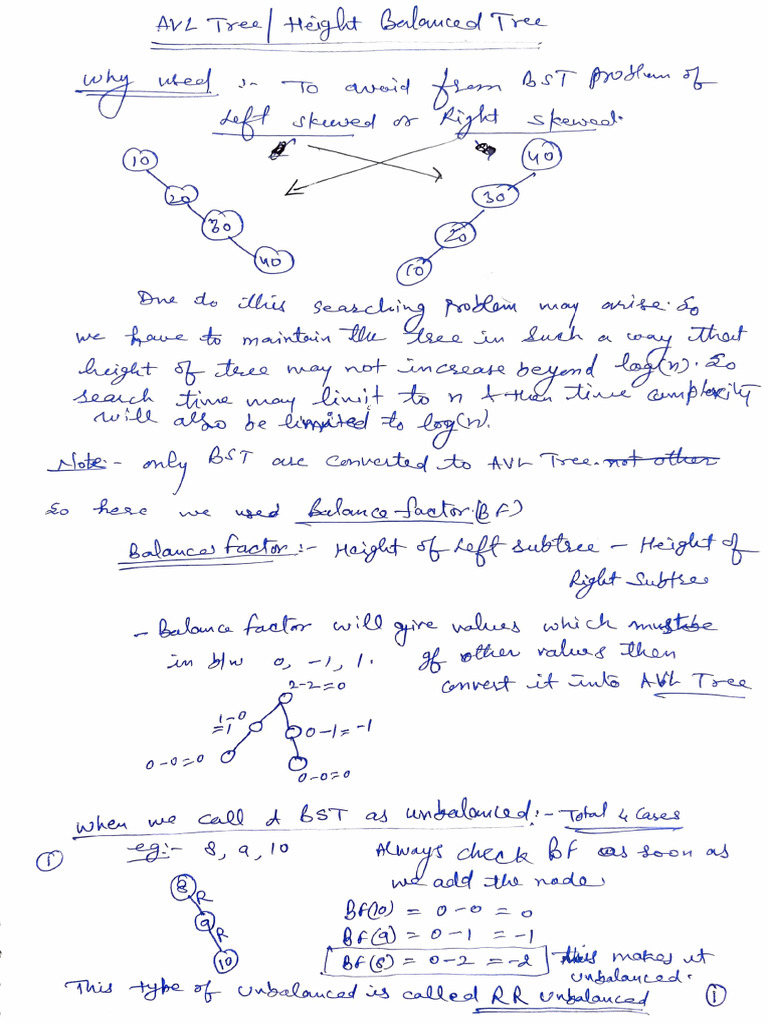 AVL Tree / Height Balanced Tree
Why used :- To avoid from BST problem of
Left skewed or Right skewed.
10
20
30
40
40
30
20
10
Due do this searching problem may arise. So
we have to maintain the tree in such a way that
height of tree may not increase beyond log(n). So
search time may limit to n & than time complexity
will also be limited to log(n).
Note:- only BST are converted to AVL Tree. not other
So here we used Balance factor.(BF)
Balance factor :- Height of Left subtree - Height of
Right Subtree
- Balance factor will give values which must be
in b/w 0, -1, 1. If other values then
convert it into AVL Tree
2-2=0
1-0
=1
0-1=-1
0-0=0
0-0=0
When we call A BST as unbalanced:- Total 4 Cases
① eg:- 8, 9, 10 Always check BF as soon as
we add the node
8
R
9
R
10
BF(10) = 0-0 = 0
BF(9) = 0-1 = -1
BF(8) = 0-2 = -2 This makes it
unbalanced.
This type of unbalanced is called RR unbalanced ①